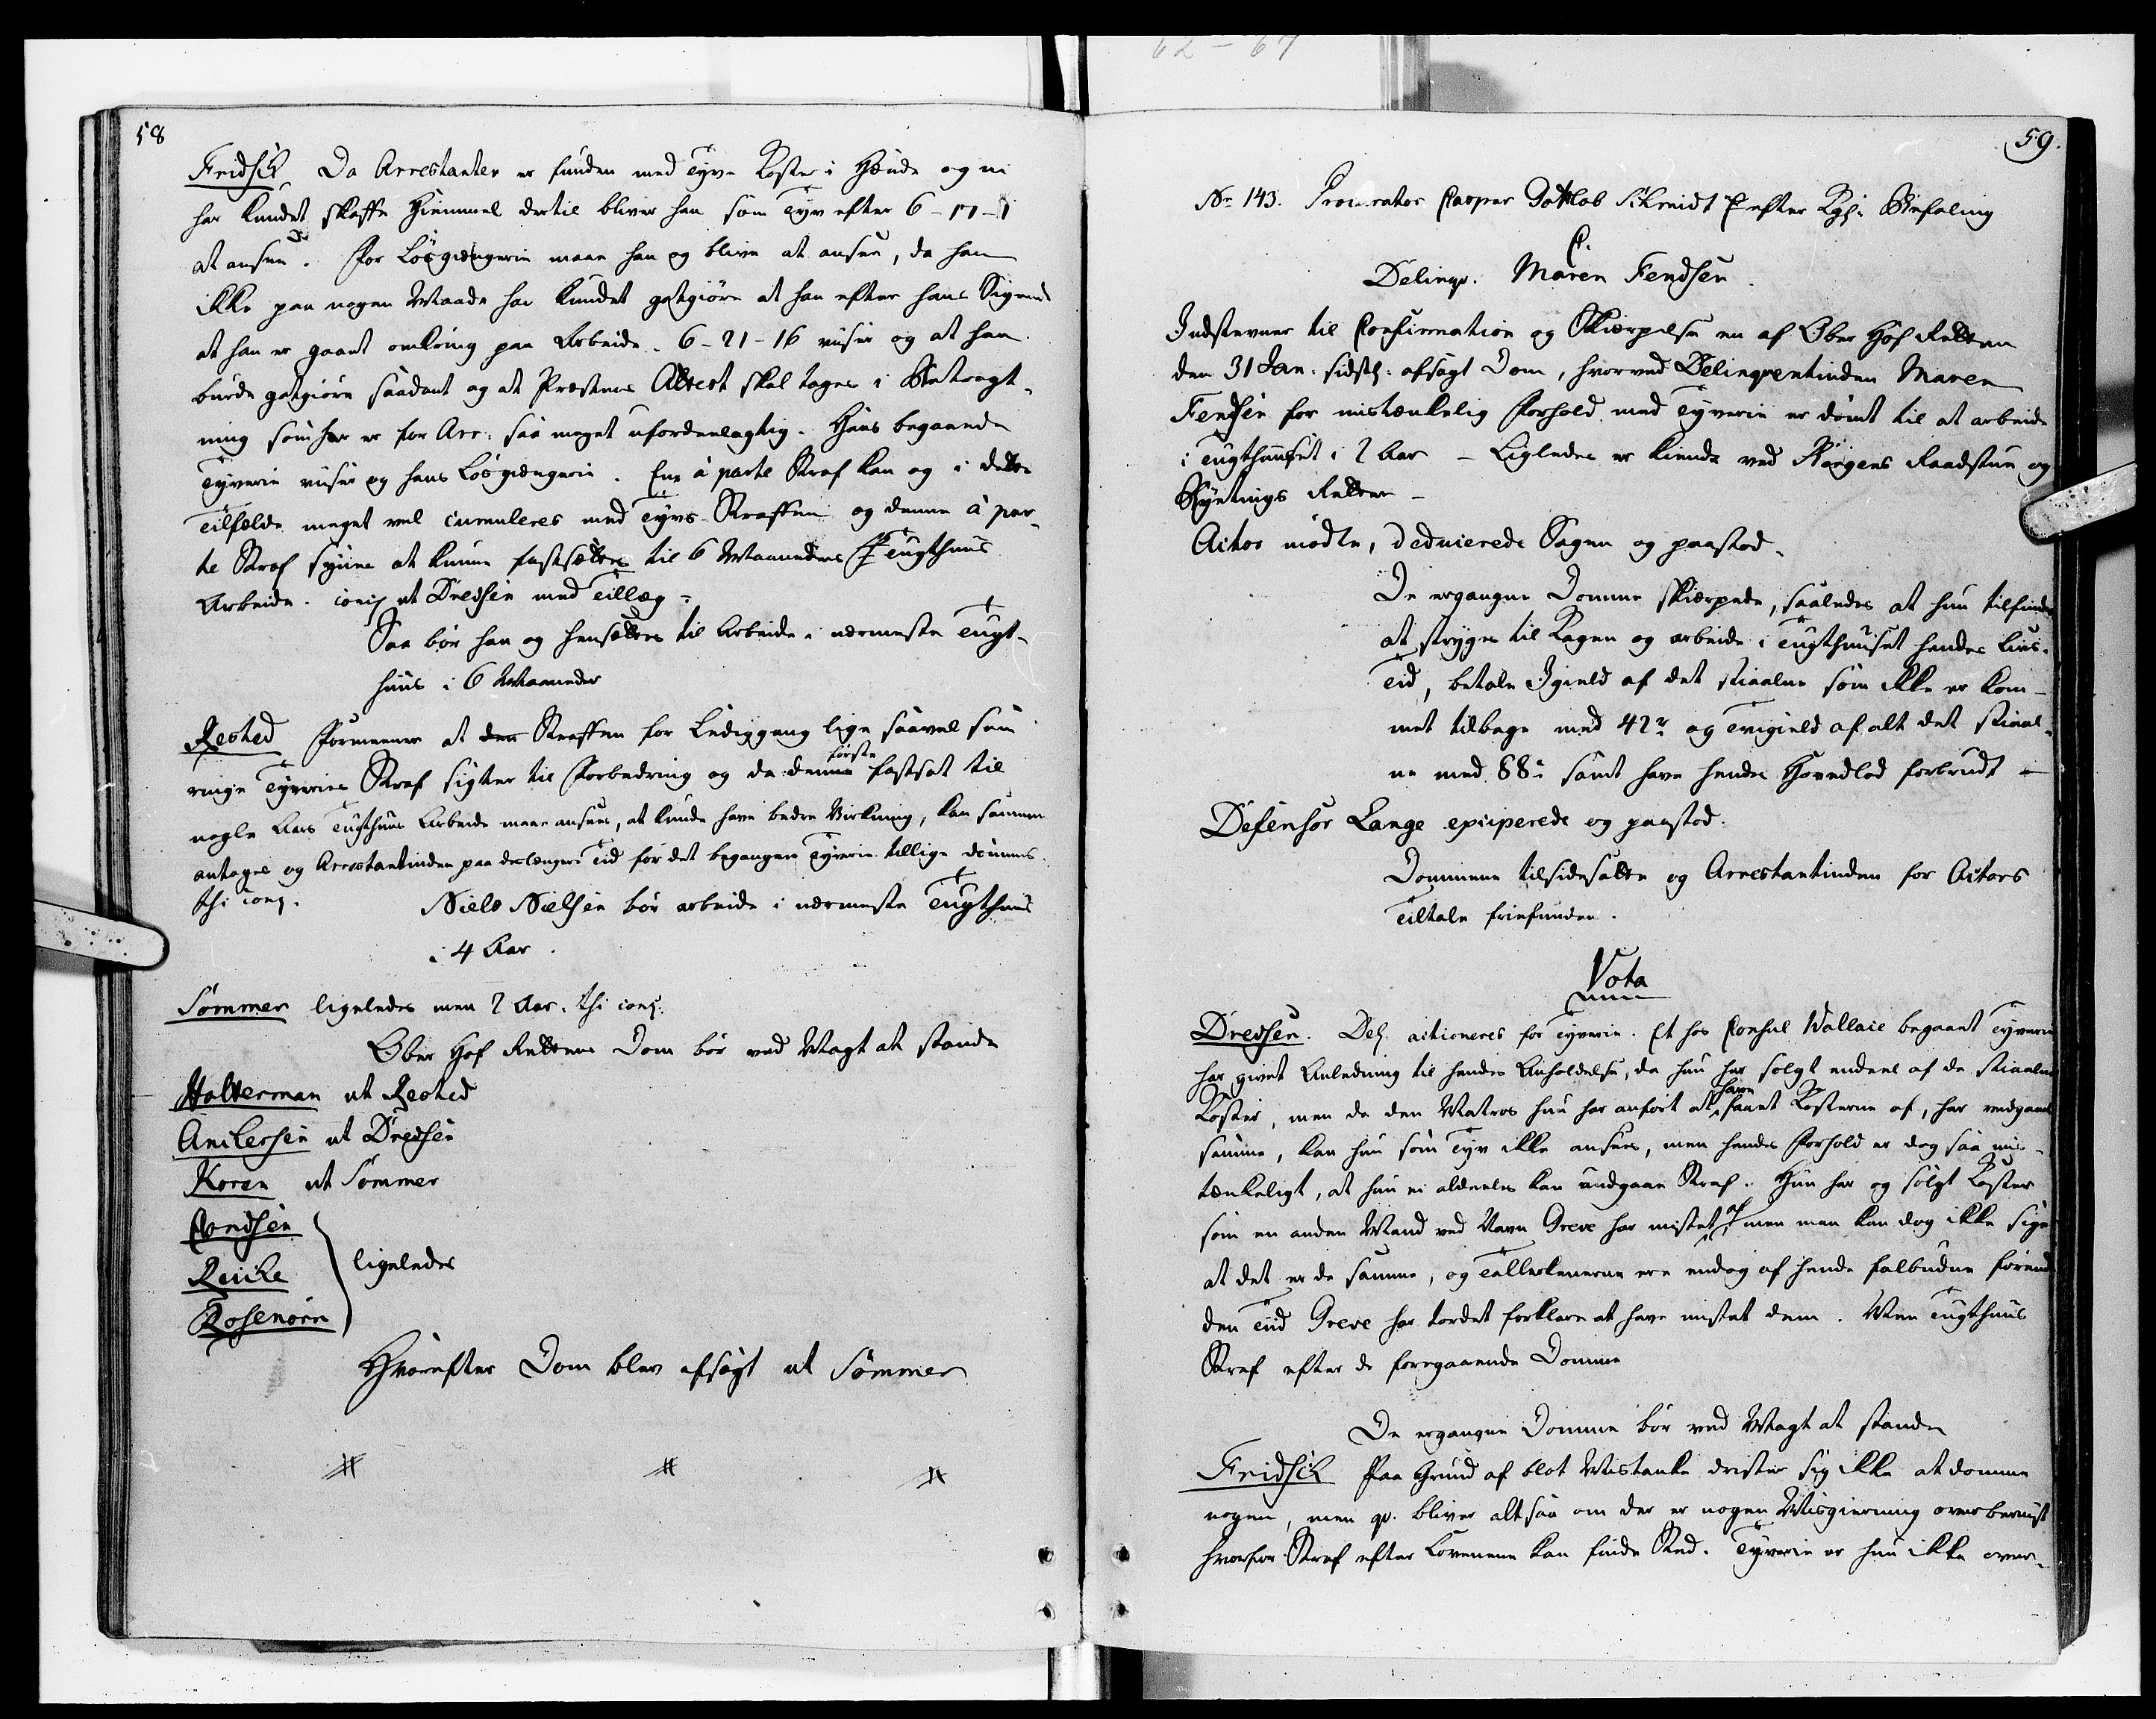 58
Fridsch Da Arrestanten er funden med Tyve Koster i Hænde og ei
har kundet skaffe Hiemmel dertil bliver han som Tyv efter 6-17-
at ansee. For Løsgiængerie maae han og blive at ansee, da han
ikke paa nogen Maade har kundet godtgiøre at han efter hans Sigende
at han er gaaet omkring paa Arbeide. 6-21-16 viiser og at han
burde godtgiøre saadant og at Præstens Attest skal tages i Betragt-
ning som her er for Arr: saa meget ufordeelagtig. Hans begaaende
Tyverie viiser og hans Løsgiængerie. Een à parte Straf kan og i dette
Tilfælde meget vel cumuleres med Tyvs-Straffen og denne à par-
te Straf synes at kunne fastsættes til 6 Maaneders Tugthuus
Arbeide. conq ut Dredsen med Tillæg:
Saa bør han og hensættes til Arbeide i nærmeste Tugt-
huus i 6 Maaneder
Rested formeener at den Straffen for Lediggang lige saavel som
ringe Tyveries Straf sigter til Forbedring og da denne første fastsat til
nogle Aars Tugthuus Arbeide maae ansees, at kunde have bedre Virkning, kan samme
antages og Arrestantinden paa deslængere Tid for det begangne Tyverie tillige dømmes
thi conq. Niels Nielsen bør arbeide i nærmeste Tugthuus
i 4 Aar.
Sommer ligeledes men 2 Aar. thi conq.
Ober Hof Rettens Dom bør ved Magt at stande
Halterman ut Rested
Anchersen ut Dredsen
Koren ut Sommer
Arndsen
Reiche
Rosenørn
ligeledes
Hvorefter Dom blev afsagt ut Sommer
59.
No 143. Procurator Casper Gotlob Schmidt efter Kgl: Befaling
C.
Delinqv. Maren Fendsen.
Indstevner til Confirmation og Skiærpelse en af Ober Hof Retten
den 31 Jan: sidstl: afsagt Dom, hvorved Delinqventinden Maren
Fendsen for mistænkelig Forhold med Tyverie er dømt til at arbeide
i Tugthuuset i 2 Aar – Ligledes er kiendt ved Bergens Raadstue og
Byetings Retter –
Actor mødte, deducerede Sagen og paastod.
De ergangne Domme skiærpede, saaledes at hun tilfindes
at stryges til Kagen og arbeide i Tugthuuset hendes Livs-
Tid, betale Igield af det stiaalne som ikke er kom-
met tilbage med 42 og Tvigield af alt det stiaal-
ne med 88 samt have hendes Hovedlod forbrudt
Defensor Lange exciperede og paastod:
Dommene tilsidesatte og Arrestantinden for Actors
Tiltale friefunden.
Vota
Dredsen. Del. actioneres for Tyverie. Et hos Consul Wallace begaaet Tyverie
har givet Anledning til hendes Anholdelse, da hun har solgt endeel af de stiaalne
Koster, men da den Matros hun har anført at have faaet Kosterne af, har vedgaaet
samme, kan hun som Tyv ikke ansees, men hendes Forhold er dog saa mis-
tænkeligt, at hun ei aldeeles kan undgaae Straf. Hun har og solgt Koster
som en anden Mand ved Navn Greve har mistet, men man kan dog ikke sige
at det er de samme, og Tallerkenerne ere endog af hende falbudne førend
den Tiid Greve har tordet forklare at have mistet dem. Men Tugthuus
Straf efter de foregaaende Domme
De ergangne Domme bør ved Magt at stande
Fridsch Paa Grund af blot Mistanke drister sig ikke at dømme
nogen, men qv. bliver altsaa om der er nogen Misgierning overbeviist
hvorfor Straf efter Lovene kan finde Sted. Tyverie er hun ikke over-